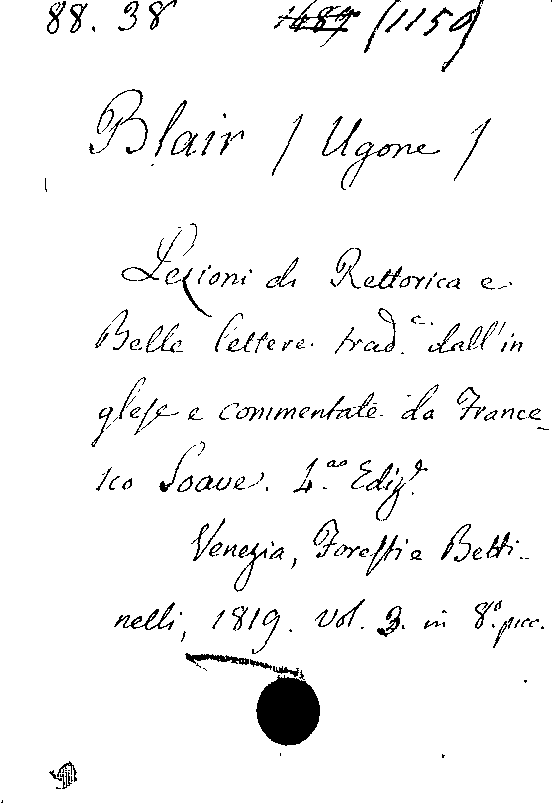 88. 38 1484 (1159
Blair / Ugone /
Lezioni di Rettorica e
Belle lettere trad.e dall'in
glese e commentate da France-
sco Soave. 4.aa Ediz.e
Venezia, Foresti e Betti-
nelli, 1819. vol. 3. in 8.o picc.